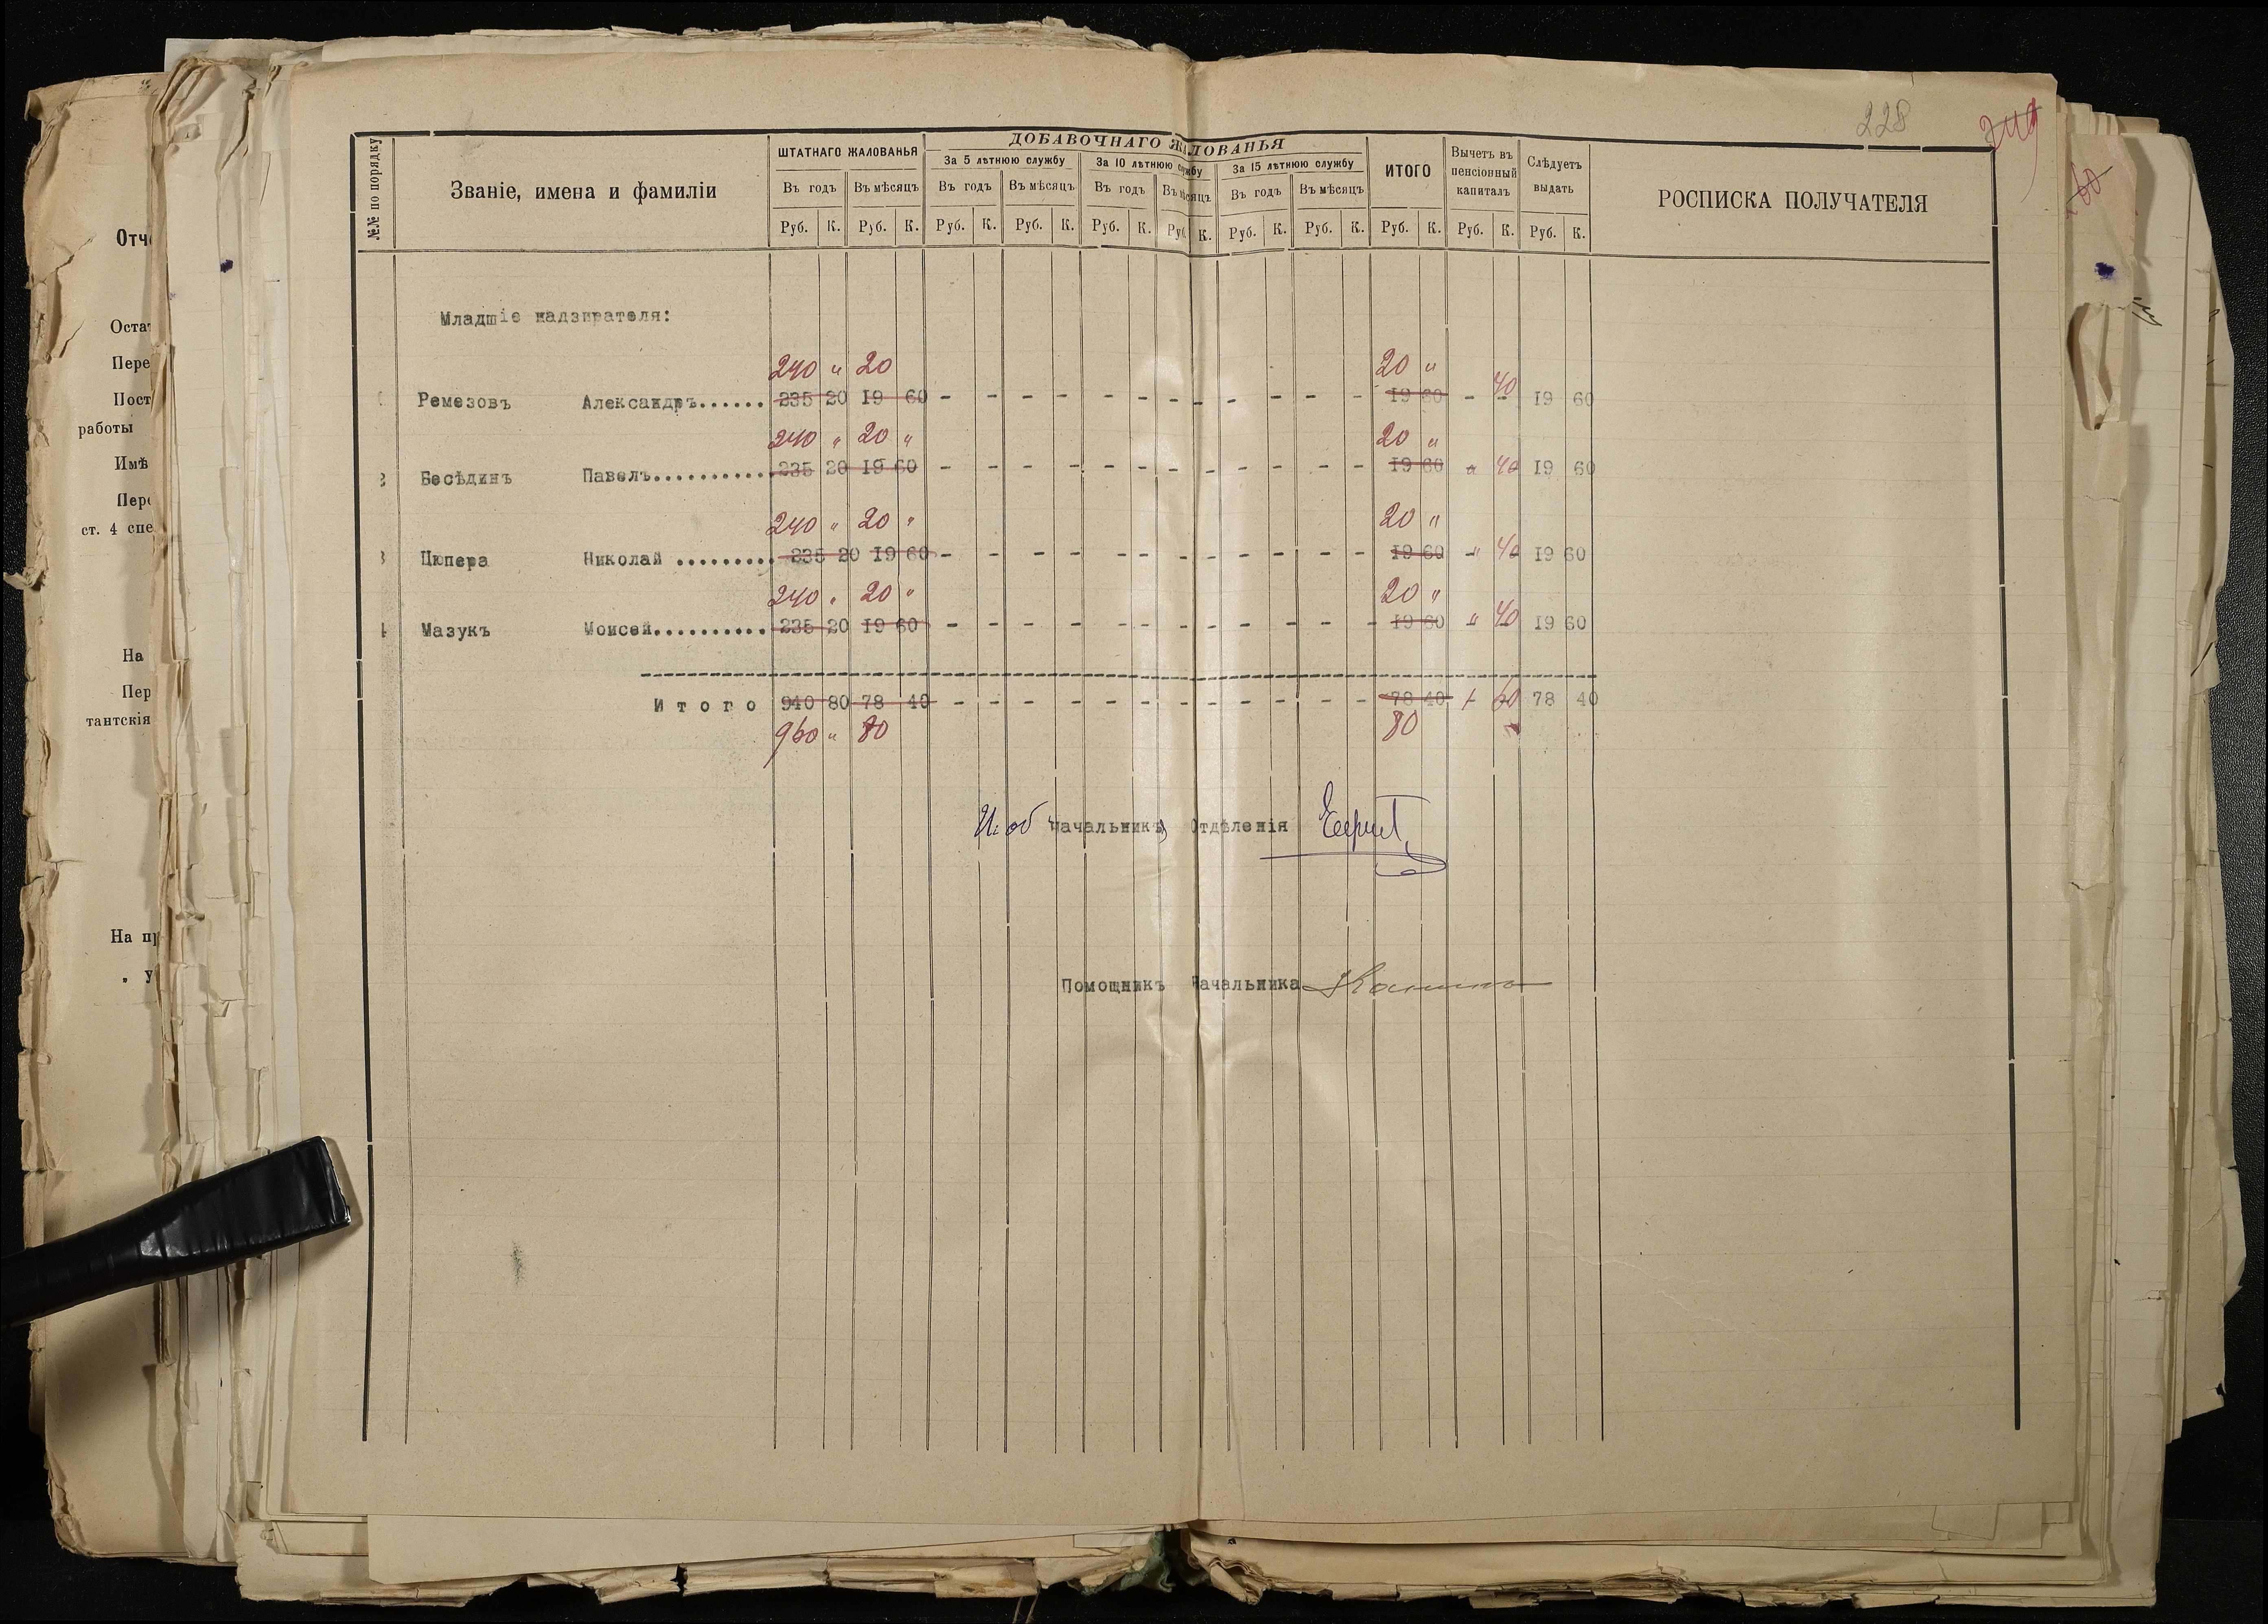 228
ДОБАВОЧНАГО ЖАЛОВАНЬЯ
№№ по порядку
Званіе, имена и фамиліи
ШТАТНАГО ЖАЛОВАНЬЯ
За 5 лѣтнюю службу За 10 лѣтнюю службу За 15 лѣтнюю службу
ИТОГО
Вычетъ въ пенсіонный капиталъ
Слѣдуетъ выдать
РОСПИСКА ПОЛУЧАТЕЛЯ
Въ годъ Въ мѣсяцъ Въ годъ Въ мѣсяцъ Въ годъ Въ мѣсяцъ Въ годъ Въ мѣсяцъ
Руб. К. Руб. К. Руб. К. Руб. К. Руб. К. Руб. К. Руб. К. Руб. К. Руб. К. Руб. К. Руб. К.
Младшіе надзирателя:
240 " 20 20 "
Ремезовъ Александръ...... 235 20 19 60 - - - - - - - - - - - - 19 60 - 40 19 60
240 " 20 " 20 "
2 Бесѣдинъ Павелъ........... 235 20 19 60 - - - - - - - - - - - - 19 60 " 40 19 60
240 " 20 " 20 "
3 Цюпера Николай ......... 235 20 19 60 - - - - - - - - - - - - 19 60 " 40 19 60
240 " 20 " 20 "
4 Мазукъ Моисей.......... 235 20 19 60 - - - - - - - - - - - - 19 60 " 40 19 60
Итого 940 80 78 40 - - - - - - - - - - - - 78 40 1 60 78 40
960 " 80 80
И. об Начальника Отдѣленія
Помощникъ Начальника
Отче
Оста
Пере
Пост
работы
Имѣ
Пере
ст. 4 спе
На
Пер
тантскія
На пр
„ у